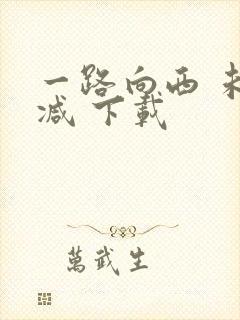 一路向西 未
减 下載
萬武生